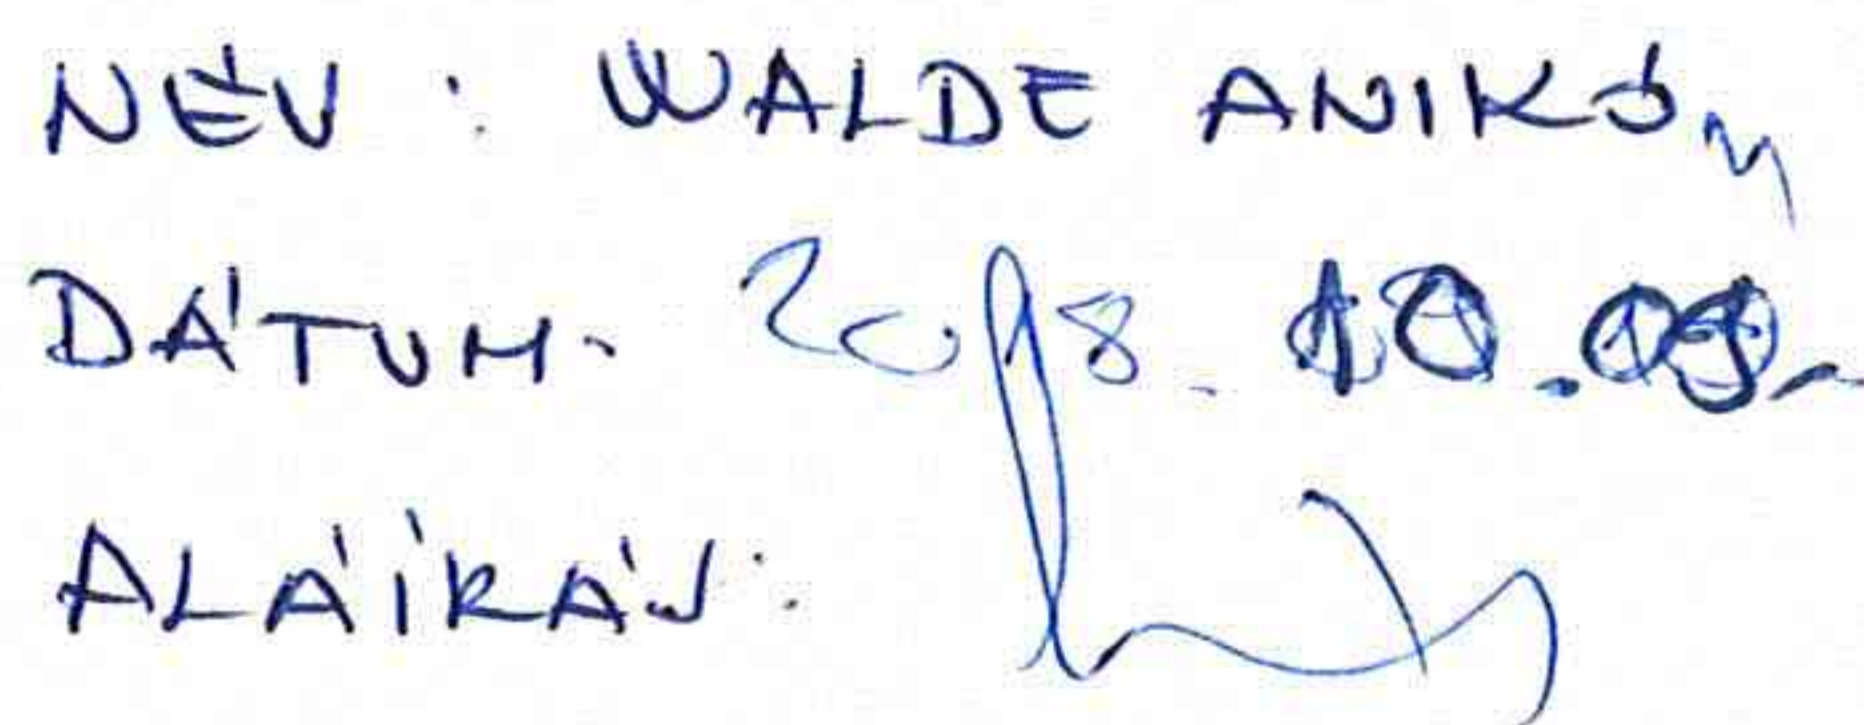 NÉV: WALDE ANIKÓ
DÁTUM. 2018. 10.09.
ALÁÍRÁS: